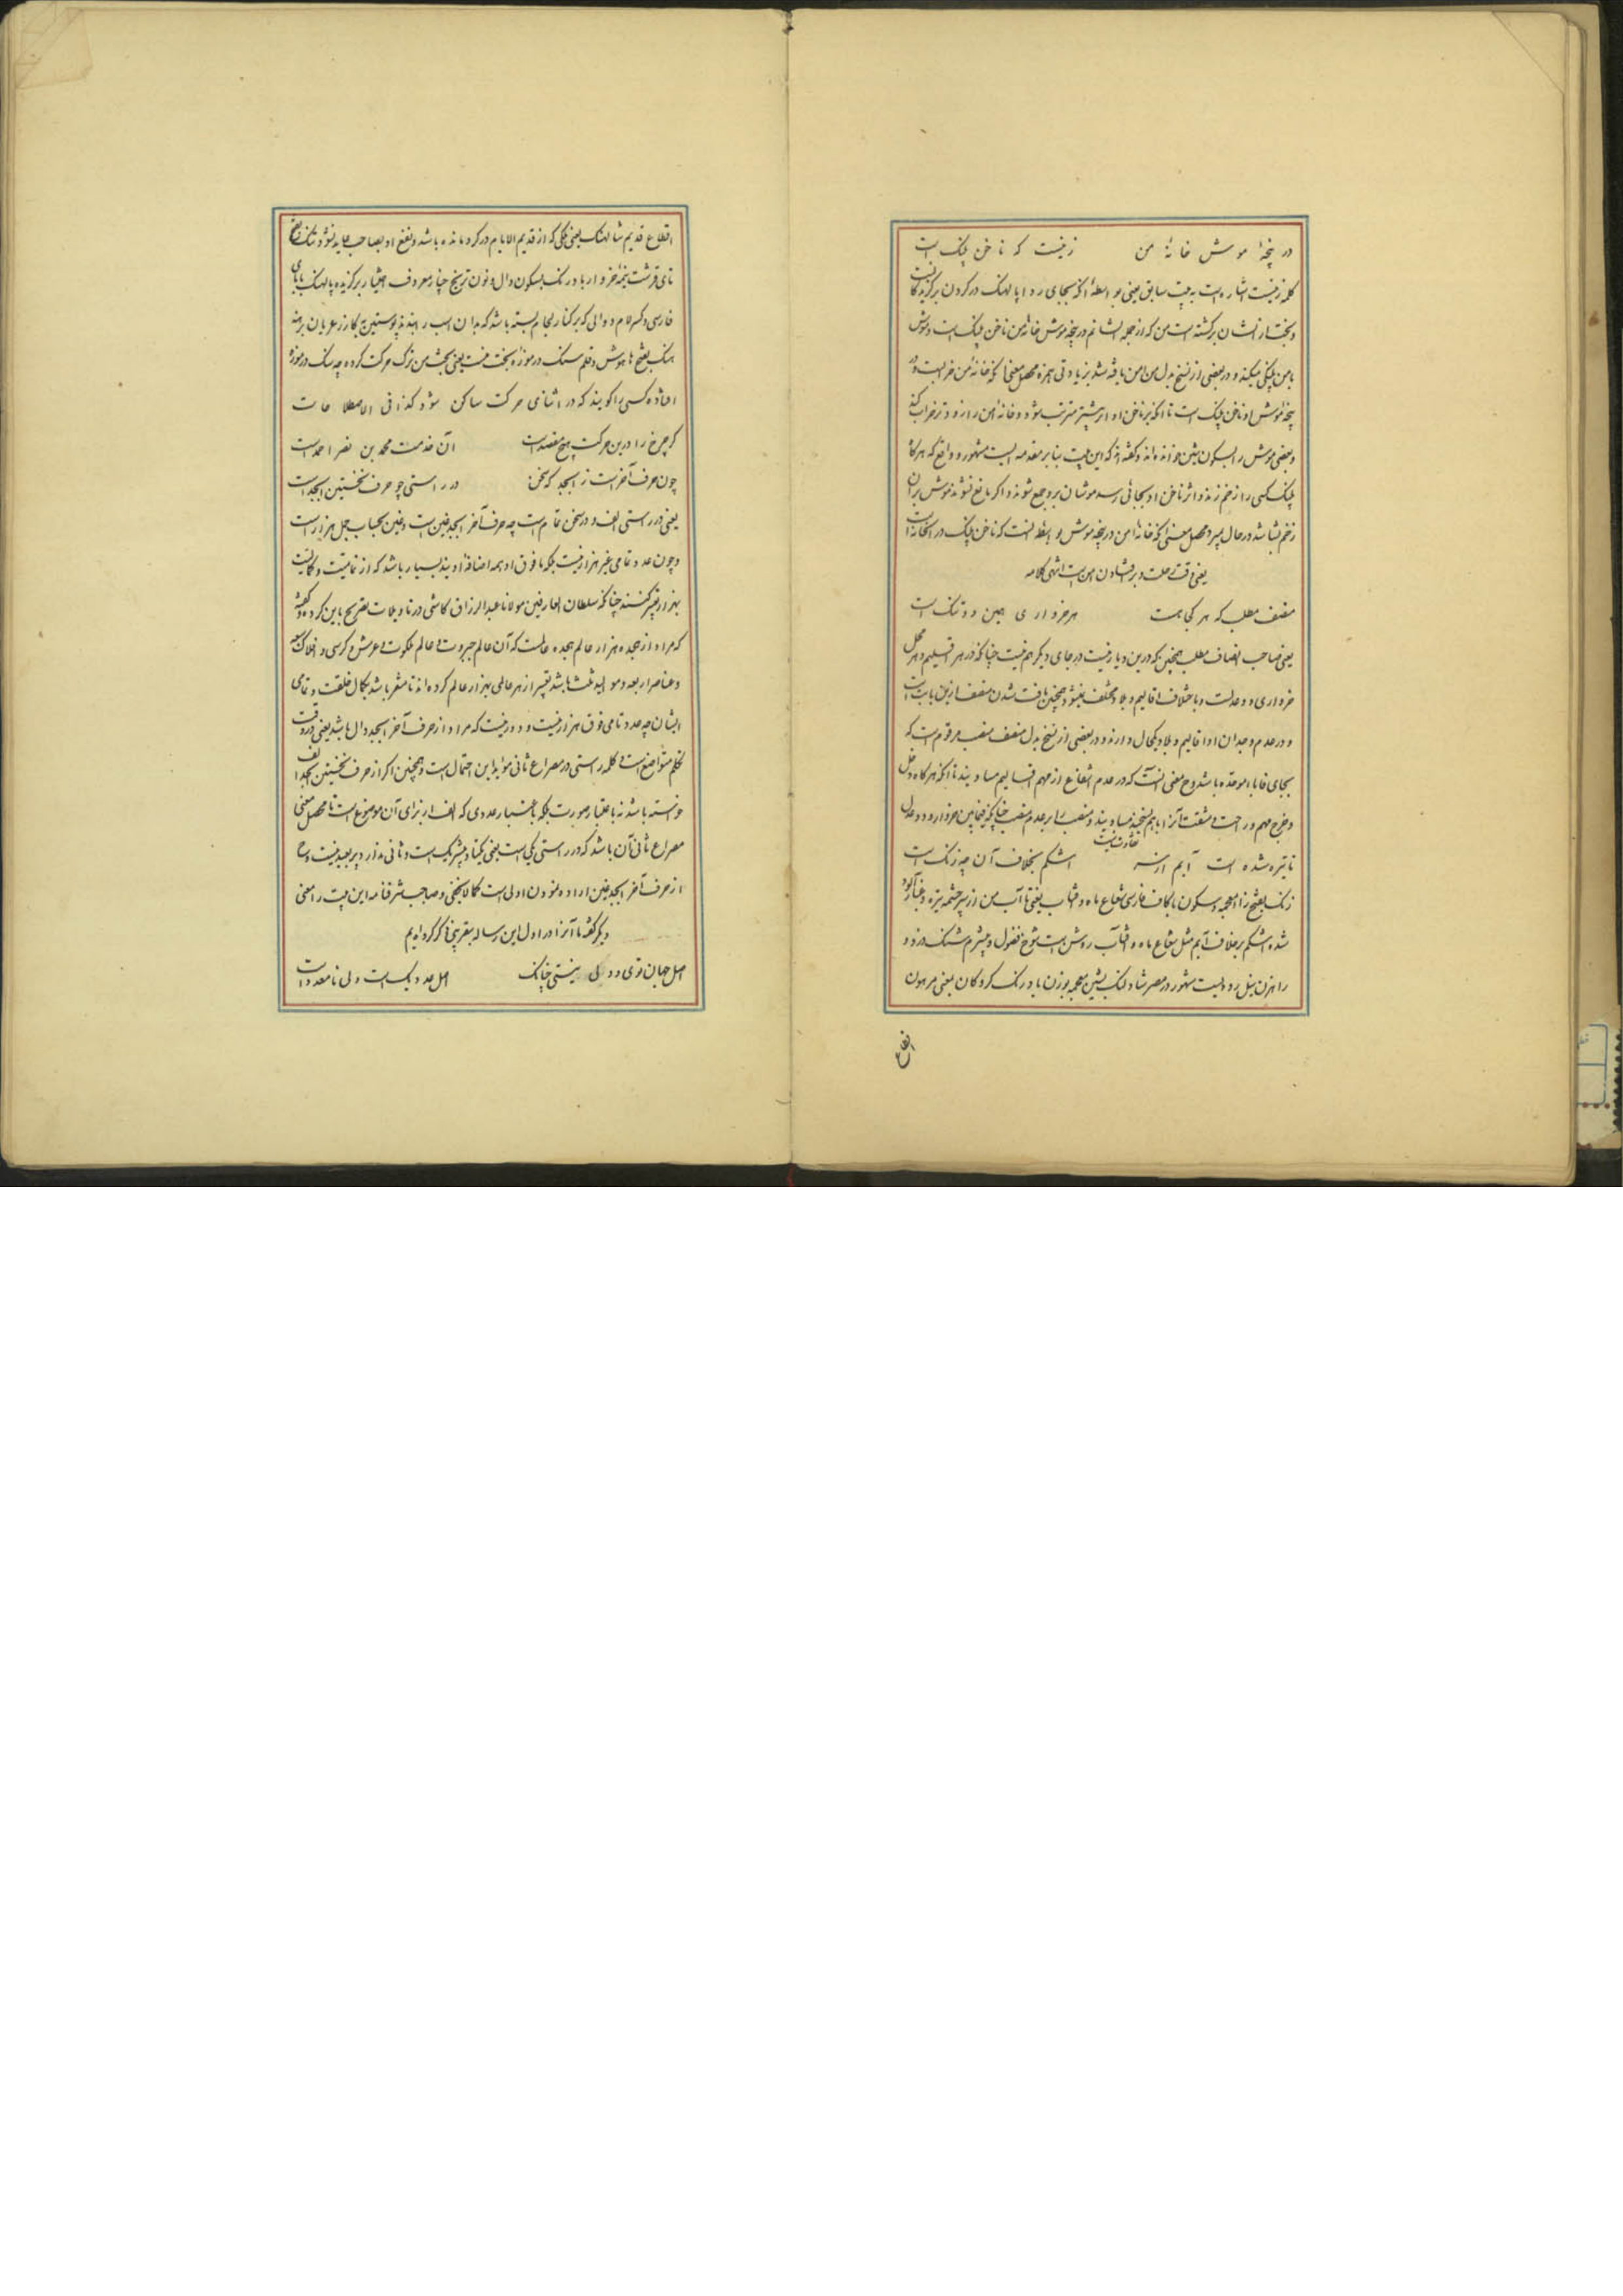 در پنجهٔ موش خانهٔ من زینیست که ناخن پلنگ است
کلمه زینیست اشاره است به بیت سابق یعنی بواسطه آنکه بجای ردا پالهنگ در کردن
و بخت از ایشان برکشته است من که از جمله ایشانم در پنجه موش خانه من ناخن پلنگ است و موش
با من پلنگی میکند و در بعضی از نسخ بدل من امن یافته شد بزیادتی همزه محصل معنی آنکه خانه من
پنجه موش او ناخن پلنگ است تا آنکه بر ناخن او اثر بیشتر مترتب شود و خانه امن را زودتر خراب کند
و بعضی موش را بسکون شین خوانده اند و گفته اند که این بیت بنابر مقدمه ایست مشهور و واقع که هرگاه
پلنگ کسی را زخم زند و اثر ناخن او بجائی رسد موشان بر او جمع شوند و اگر مانع نشوند موش بر آن
زخم بشاشد در حال بمیرد محصل معنی آنکه خانه امن در پنجه موش بواسطه آنست که ناخن پلنگ در
یعنی وقت رحلت و بر افتادن من است انتهی کلامه
منصف مطلب که هر کجا هست هر خرواری همین دو تنگ است
یعنی صاحب انصاف مطلب همچنین که درین دیار نیست در جای دیگر هم نیست چنانکه در هر اقلیم و هر محل
خرواری دو عدلست و باختلاف اقالیم و بلاد مختلف نمیشود همچنین یافت شدن منصف ازین بابت است
و در عدم وجدان او اقالیم و بلاد یکحال دارند و در بعضی از نسخ بدل منصف منصب مرقوم است که
بجای فا باء موحده باشد و ح معنی آنست که در عدم انتفاع از مهم اقالیم مساویند تا آنکه هرگاه دخل
و خرج مهم و راحت و مشقت آنرا با هم بسنجند مساویند و منصب را بر عدم منصب چنانکه فیمابین خروار و دو عدل
تفاوت نیست
تا تیره شده است آبم از سر اشکم بخلاف آن چو زنگ است
زنگ بفتح زاء معجمه و سکون با کاف فارسی شعاع ماه و آفتاب یعنی تا آب من از سر چشمه تیره و غبارآلود
شده اشکم بر خلاف آبم مثل شعاع ماه و آفتاب روشن است شوخ فضول و بیشرم شنگ دزد و
راهزن نیل رودیست مشهور در مصر شالهنگ بشین معجمه بوزن با درنگ گروگان یعنی مرهون
اقطاع
اقطاع قدیم شالهنگ یعنی ملکی که از قدیم الایام در گرو مانده باشد و نفع او بصاحب عاید نشود
تای قرشت نیمه خروار بادرنگ بسکون دال و نون ترنج خیار معروف اختیار برگزیده پالهنگ ببای
فارسی و کسر لام دوالی که بر کنار لجام بسته باشد که بدان اسب را بندند پوستین گازر عریان برهنه
هنگ بفتح ها هوش و فهم سنگ در موزه بخت منست یعنی بخت من ترک حرکت کرده چه سنگ در موزه
افتاده کسی را گویند که در اثنای حرکت ساکن شود کذا فی الاصطلاحات
گر چرخ را درین حرکت هیچ مقصداست آن خدمت محمد بن نصر احمداست
چون حرف آخراست ز ابجد گه سخن در راستی چو حرف نخستین ابجداست
یعنی در راستی الف و در سخن تمام است چه حرف آخر ابجد غین است و غین بحساب جمل هزار است
و چون عدد تمامی غیر هزار نیست بلکه مافوق او همه اضافه اویند بسیار باشد که از تمامیت و کمالیت
بهزار تعبیر کنند چنانکه سلطان العارفین مولانا عبدالرزاق کاشی در تاویلات تصریح باین کرده و گفته
که مراد از هجده هزار عالم هجده عالمست که آن عالم جبروت و عالم ملکوت و عرش و کرسی و افلاک سبعه
و عناصر اربعه و موالید ثلثه باشد تعبیر از هر عالمی بهزار عالم کرده اند تا مشعر باشد بکمال خلقت و تمامی
ایشان چه عدد تامی فوق هزار نیست و دور نیست که مراد از حرف آخر ابجد دال باشد یعنی در وقت
تکلم متواضع است و کلمه راستی در مصراع ثانی مؤید این احتمال است و همچنین اگر از حرف نخستین ابجد الف
خواسته باشد نه باعتبار صورت بلکه باعتبار عددی که الف از برای آن موضوع است تا محصل معنی
مصراع ثانی آن باشد که در راستی یکی است یعنی یکتا و بیشریک است و ثانی ندارد پر بعید نیست و ح
از حرف آخر ابجد غین اراده نمودن اولی است کما لا یخفی و صاحب شرفنامه این بیت را معنی
دیگر گفته ما آنرا در اول این رساله بتقریبی ذکر کرده ایم
اصل جهان توی و ولی نیستی چنانک اصل عدد یکست ولی نامعدداست